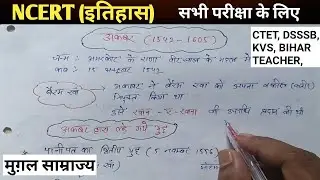 NCERT (इतिहास)
सभी परीक्षा के लिए
अकबर (1542-1605)
CTET, DSSSB,
KVS, BIHAR
TEACHER,
जन्म : अमरकोट के राणा वीरसाल के महल में
15 अक्टूबर 1542
बैरम खाँ
अकबर ने बैरम खाँ को अपना वकील
नियुक्त किया था
इसे खान-ए-खाना की उपाधि प्रदान की थी
अकबर द्वारा लड़े गये युद्ध
पानीपत का द्वितीय युद्ध (5 नवम्बर 1556)
मुग़ल साम्राज्य